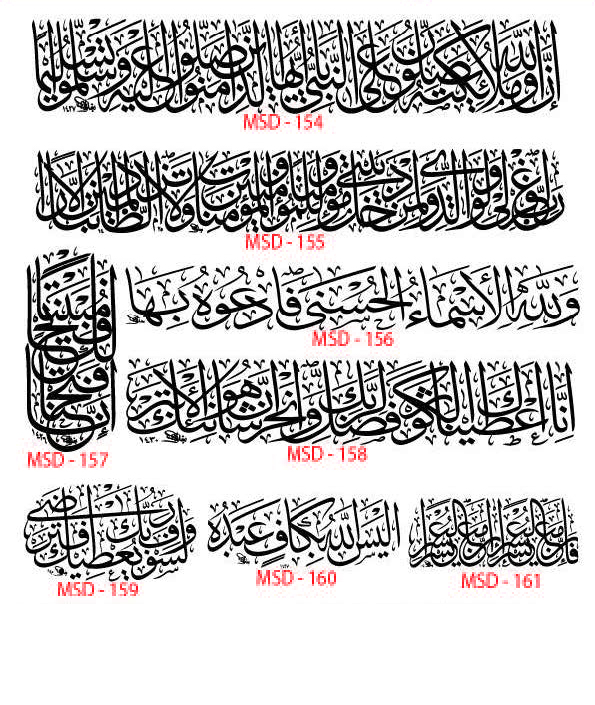 إن الله وملائكته يصلون على النبي يا أيها الذين آمنوا صلوا عليه وسلموا تسليما
MSD - 154
رب اغفر لي ولوالدي ولمن دخل بيتي مؤمنا وللمؤمنين والمؤمنات ولا تزد الظالمين إلا تبارا
MSD - 155
ولله الأسماء الحسنى فادعوه بها
MSD - 156
إنا فتحنا لك فتحا مبينا
MSD - 157
إنا أعطيناك الكوثر فصل لربك وانحر إن شانئك هو الأبتر
MSD - 158
ولسوف يعطيك ربك فترضى
MSD - 159
أليس الله بكاف عبده
MSD - 160
فإن مع العسر يسرا إن مع العسر يسرا
MSD - 161